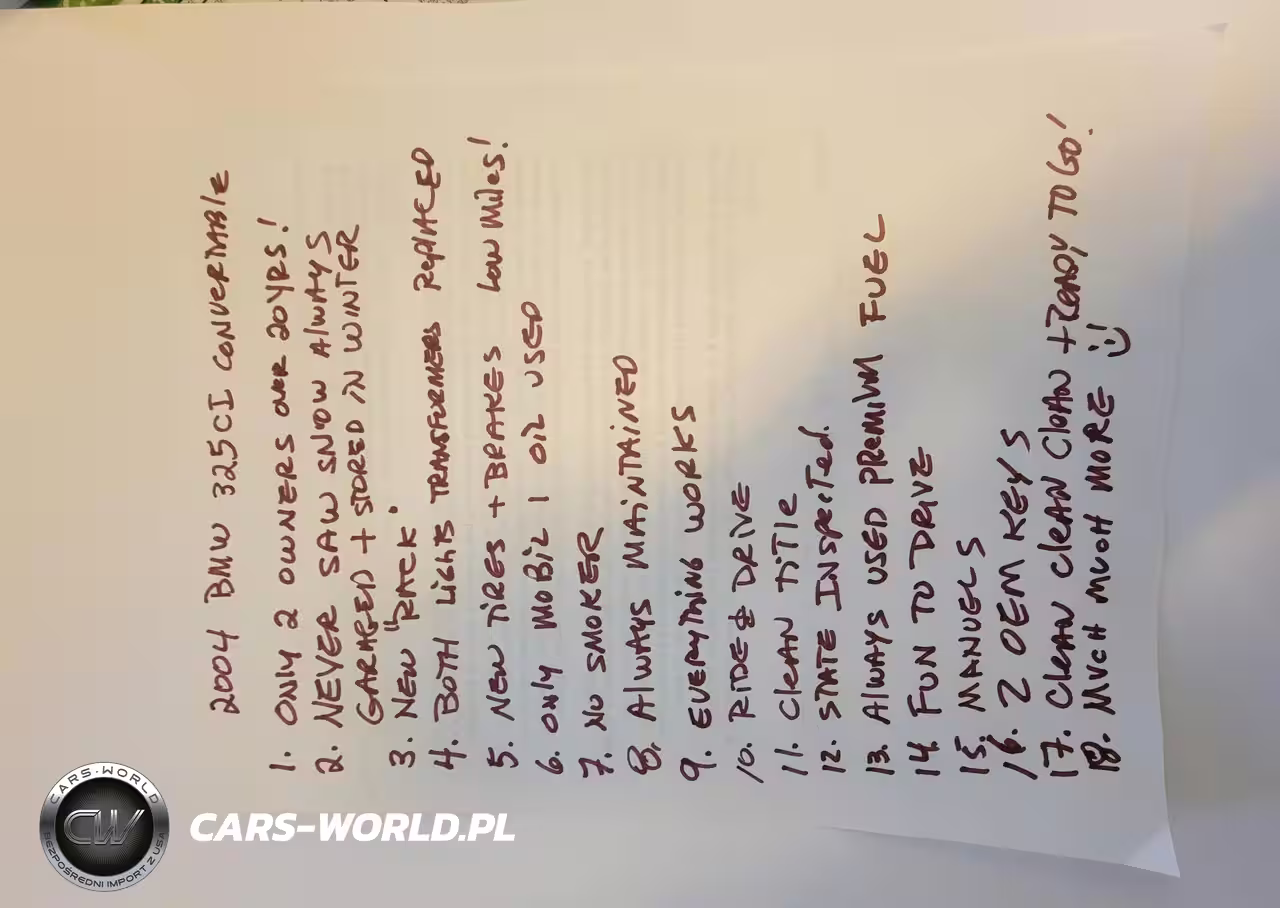 2004 BMW 325CI CONVERTABLE
1. ONLY 2 OWNERS OVER 20YRS!
2. NEVER SAW SNOW AlWAYS
GARAGED + STORED IN WINTER
3. NEW "RACK"
4. BOTH LIGHTS TRANSFORMERS REPlACED
5. NEW TIRES + BRAKES LOW MILES!
6. ONLY MOBIL 1 OIL USED
7. NO SMOKER
8. AlWAYS MAINTAINED
9. EVERYTHING WORKS
10. RIDE & DRIVE
11. CLEAN TITLE
12. STATE INSPECTED.
13. ALWAYS USED PREMIUM FUEL
14. FUN TO DRIVE
15. MANUELS
16. 2 OEM KEYS
17. CLEAN CLEAN CLEAN + READY TO GO!
18. MUCH MUCH MORE
CARS-WORLD
CW
BEZPOŚREDNI IMPORT Z USA
CARS-WORLD.PL